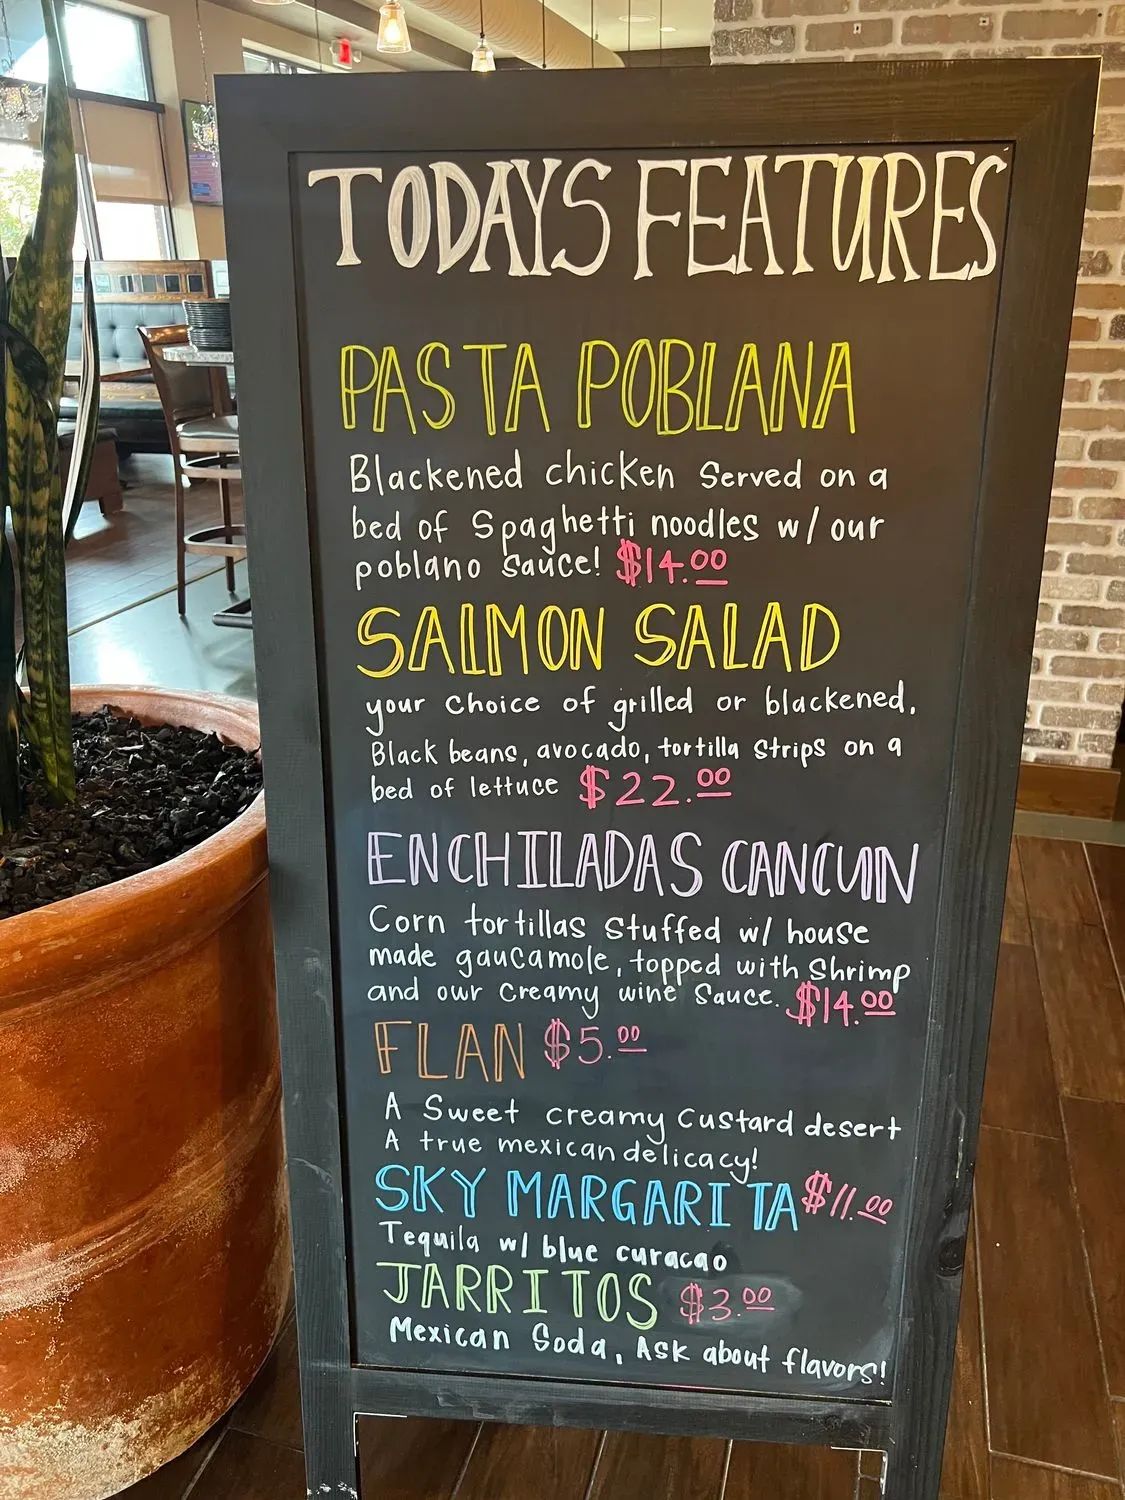 TODAYS FEATURES
PASTA POBLANA
Blackened chicken Served on a
bed of Spaghetti noodles w/ our
poblano sauce! $14.00
SALMON SALAD
your choice of grilled or blackened,
Black beans, avocado, tortilla strips on a
bed of lettuce $22.00
ENCHILADAS CANCUN
Corn tortillas Stuffed w/ house
made gaucamole, topped with Shrimp
and our creamy wine Sauce. $14.00
FLAN $5.00
A Sweet creamy custard desert
A true mexican delicacy!
SKY MARGARITA $11.00
Tequila w/ blue curacao
JARRITOS $3.00
Mexican Soda, Ask about flavors!